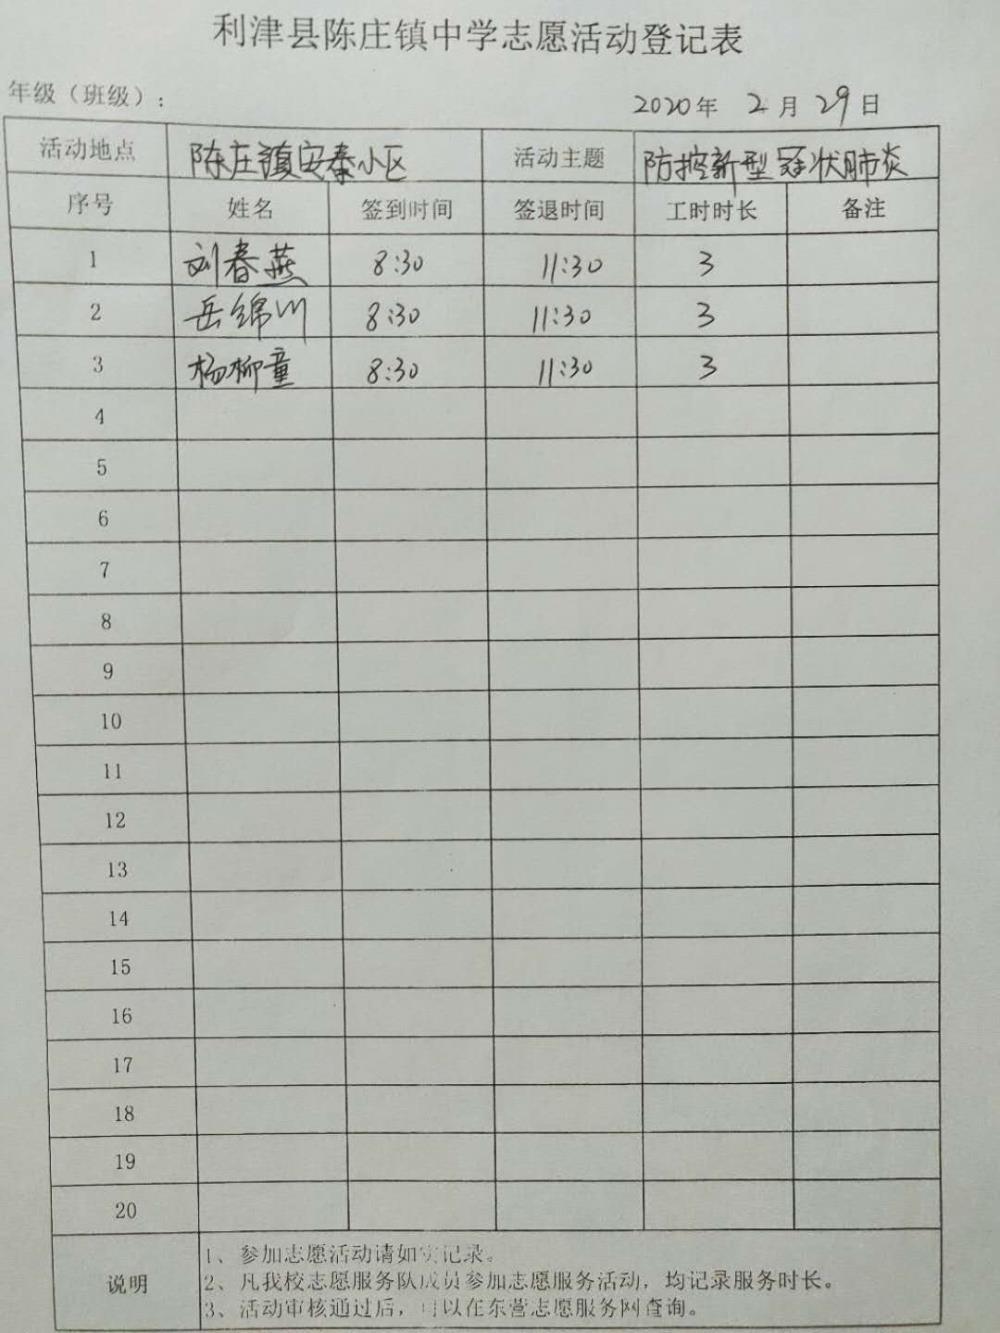 利津县陈庄镇中学志愿活动登记表
年级（班级）：
2020年 2月 29日
活动地点 陈庄镇安泰小区 活动主题 防控新型冠状肺炎
序号 姓名 签到时间 签退时间 工时时长 备注
1 刘春燕 8:30 11:30 3
2 岳绵川 8:30 11:30 3
3 杨柳童 8:30 11:30 3
4
5
6
7
8
9
10
11
12
13
14
15
16
17
18
19
20
说明
1、参加志愿活动请如实记录。
2、凡我校志愿服务队成员参加志愿服务活动，均记录服务时长。
3、活动审核通过后，可以在东营志愿服务网查询。